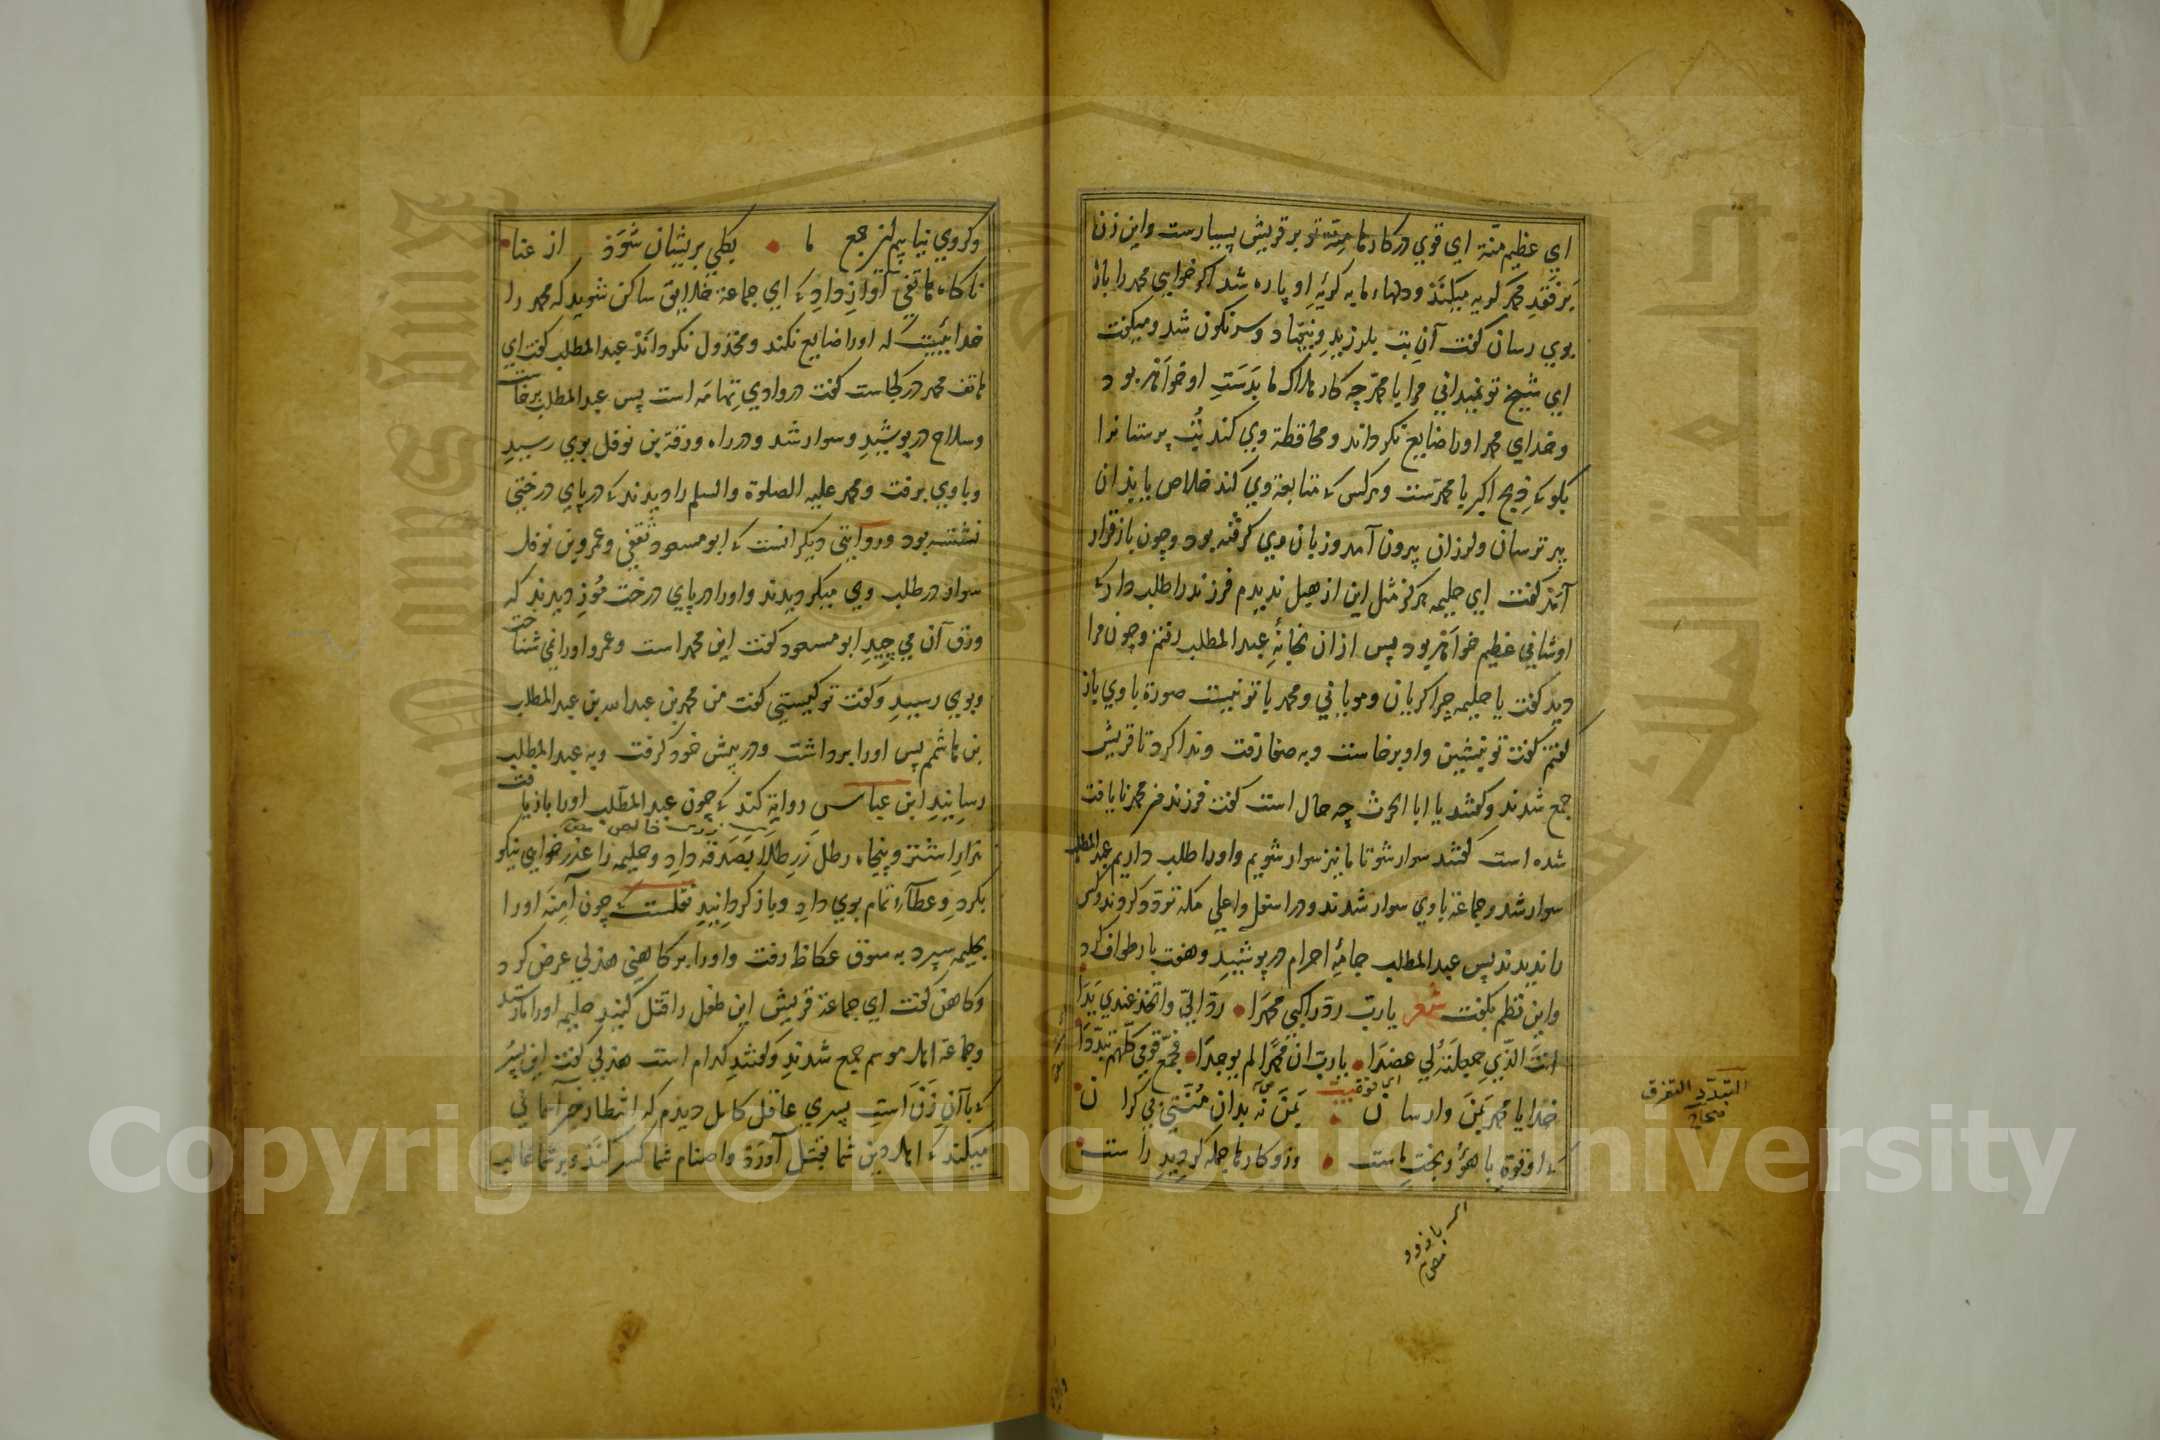 اي عظيم منّة اي قوي در كارها منّة تو بر قريش بسيارست واين زن
بر فقد محمد كريه ميكند ودلهاء ما به كريهٔ او پاره شد اكر خواهي محمد را باز
بوي رسان كفت آن بت بلرزيد وبيفتاد وسرنكون شد وميكفت
اي شيخ تو نميداني مرا با محمد چه كار هلاك ما بدست او خواهد بود
وخداي محمد اورا ضايع نكرداند ومحافظة وي كند بت پرستانرا
بكو كه ذبح اكبر با محمدست وهركس كه متابعة وي كند خلاص يابد ان
پير ترسان ولرزان بيرون آمد وزبان وي كرفته بود وچون باز قرار
آمد كفت اي حليمه هركز مثل اين از هبل نديدم فرزند را طلب دار كه
اوشاني عظيم خواهد بود پس ازان بخانهٔ عبد المطلب رفتم وچون مرا
ديد كفت يا حليمه چرا كريان ومويا ني ومحمد با تو نيست صورة با وي باز
كفتم كفت تو بنشين واو برخاست وبه صفا رفت وندا كرد تا قريش
جمع شدند وكفتند يا ابا الحرث چه حال است كفت فرزندم محمد نا يافت
شده است كفتند سوار شو تا ما نيز سوار شويم واورا طلب داريم عبد المطلب
سوار شد وجماعة با وي سوار شدند ودر اسفل واعلي مكه تردد كردند وكس
را نديدند پس عبد المطلب جامهٔ احرام در پوشيد وهفت بار طواف كرد
واين نظم بكفت شعر يا رب رد راكبي محمدا ردّ اليّ واتخذ عندي يدا
انت الذي جعلته لي عضدا يا رب ان محمدا لم يوجدا فجمع قومي كلهم تبددا
خدايا محمد بمن وارسان بمن نه بدان منتي بي كران
كه او قوة بازو وبخت ماست وزو كارها جمله كرديد راست
التبدد التفرق
صحاح
وكروي نيابيم از جمع ما بكلي پريشان شود از عنا
ناكاه هاتفي آواز داد كه اي جماعة خلايق ساكن شويد كه محمد را
خدائيست كه اورا ضايع نكند ومخذول نكرداند عبد المطلب كفت اي
هاتف محمد در كجاست كفت در وادي تهامه است پس عبد المطلب برخاست
وسلاح در پوشيد وسوار شد ودر راه ورقة بن نوفل بوي رسيد
وبا وي برفت ومحمد عليه الصلوة والسلم را ديدند كه در پاي درختي
نشسته بود وروايتي ديكر انست كه ابو مسعود ثقفي وعمرو بن نوفل
سوار در طلب وي ميكرديدند واورا در پاي درخت موز ديدند كه
ورق آن مي چيد ابو مسعود كفت اين محمد است وعمرو اورا نمي شناخت
وبوي رسيد وكفت تو كيستي كفت من محمد بن عبد الله بن عبد المطلب
بن هاشم پس اورا برداشت ودر پيش خود كرفت وبه عبد المطلب
رسانيد ابن عباس رواية كند كه چون عبد المطلب اورا باز يافت
هزار اشتر وپنجاه رطل زر طلا بصدقه داد وحليمه را عذر خواهي نيكو
بكرد وعطاء تمام بوي داد وباز كردانيد نقلست كه چون آمنه اورا
بحليمه سپرد به سوق عكاظ رفت واورا بر كاهني هذلي عرض كرد
وكاهن كفت اي جماعة قريش اين طفل را قتل كنيد حليمه اورا
وجماعة اهل موسم جمع شدند وكفتند كدام است هذلي كفت اين پسر
كه با آن زن است پسري عاقل كامل ديدم كه انتظار خبر آسماني
ميكند كه اهل دين شما بقتل آورد واصنام شما كسر كند وبر شما غالب
Copyright © King Saud University